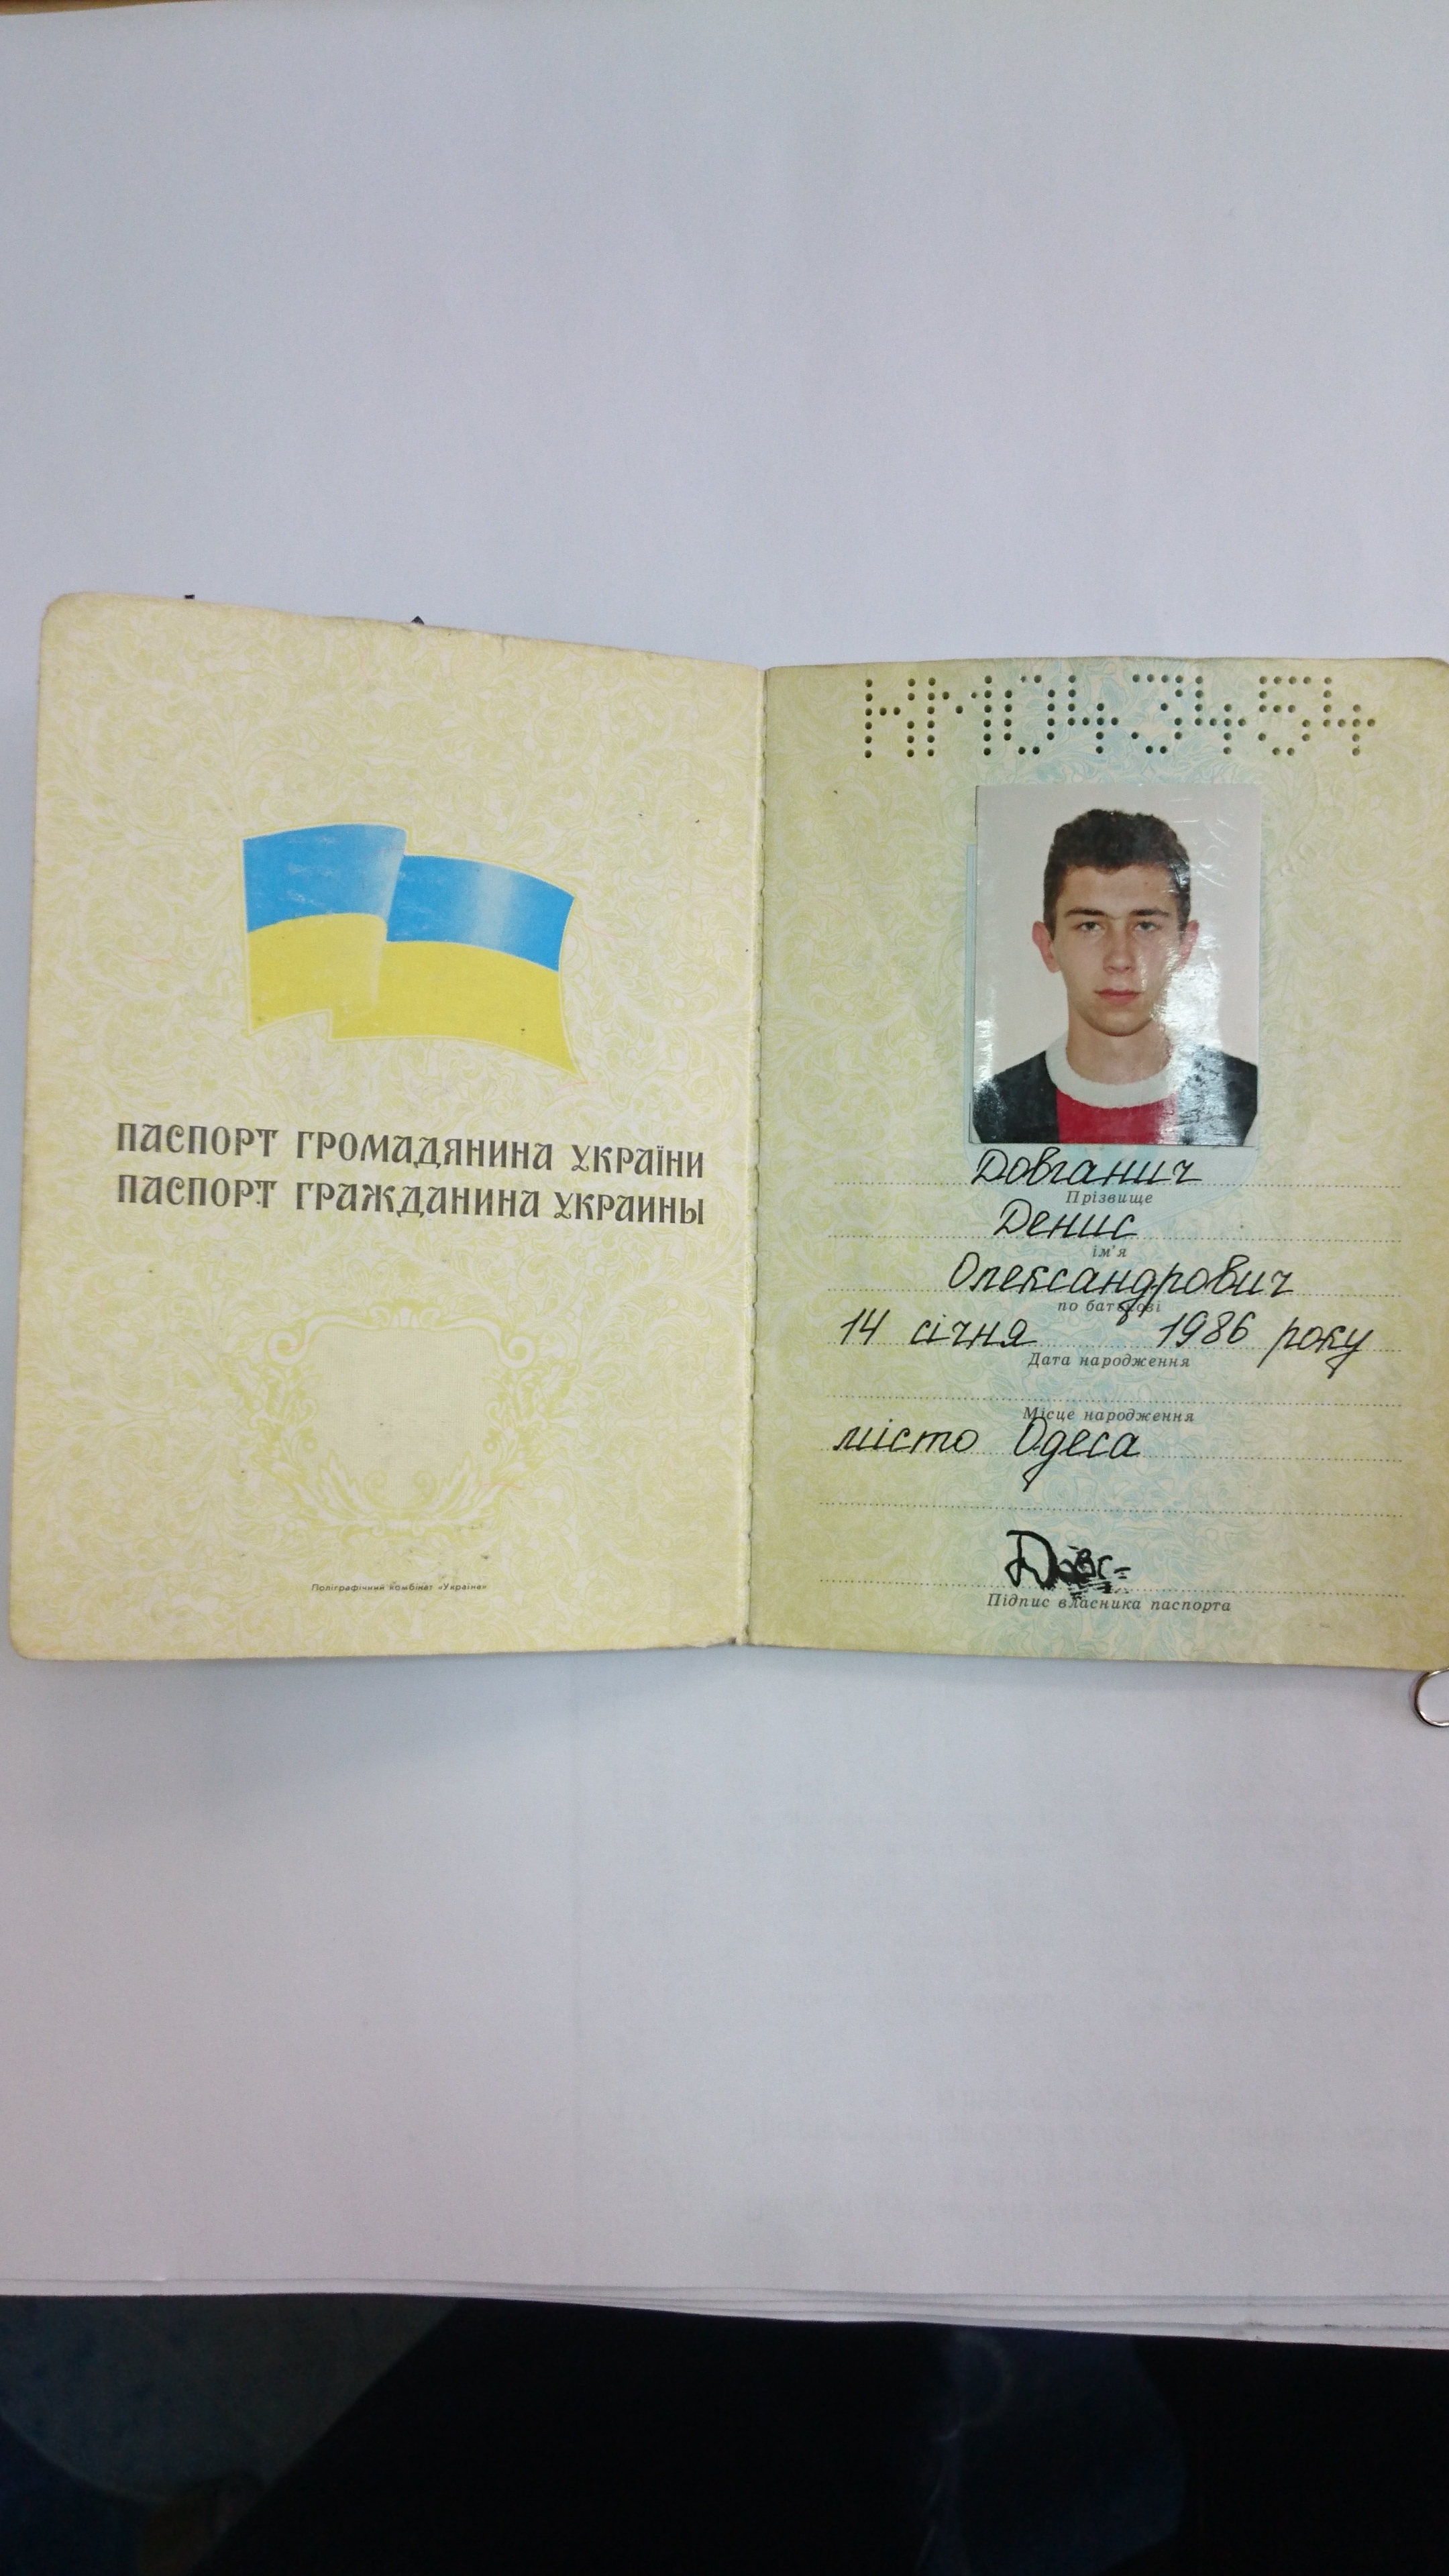 ПАСПОРТ ГРОМАДЯНИНА УКРАЇНИ
ПАСПОРТ ГРАЖДАНИНА УКРАИНЫ
Поліграфічний комбінат «Україна»
НМ043454
Довганич
Прізвище
Денис
ім'я
Олександрович
по батькові
14 січня 1986 року
Дата народження
Місце народження
місто Одеса
Підпис власника паспорта